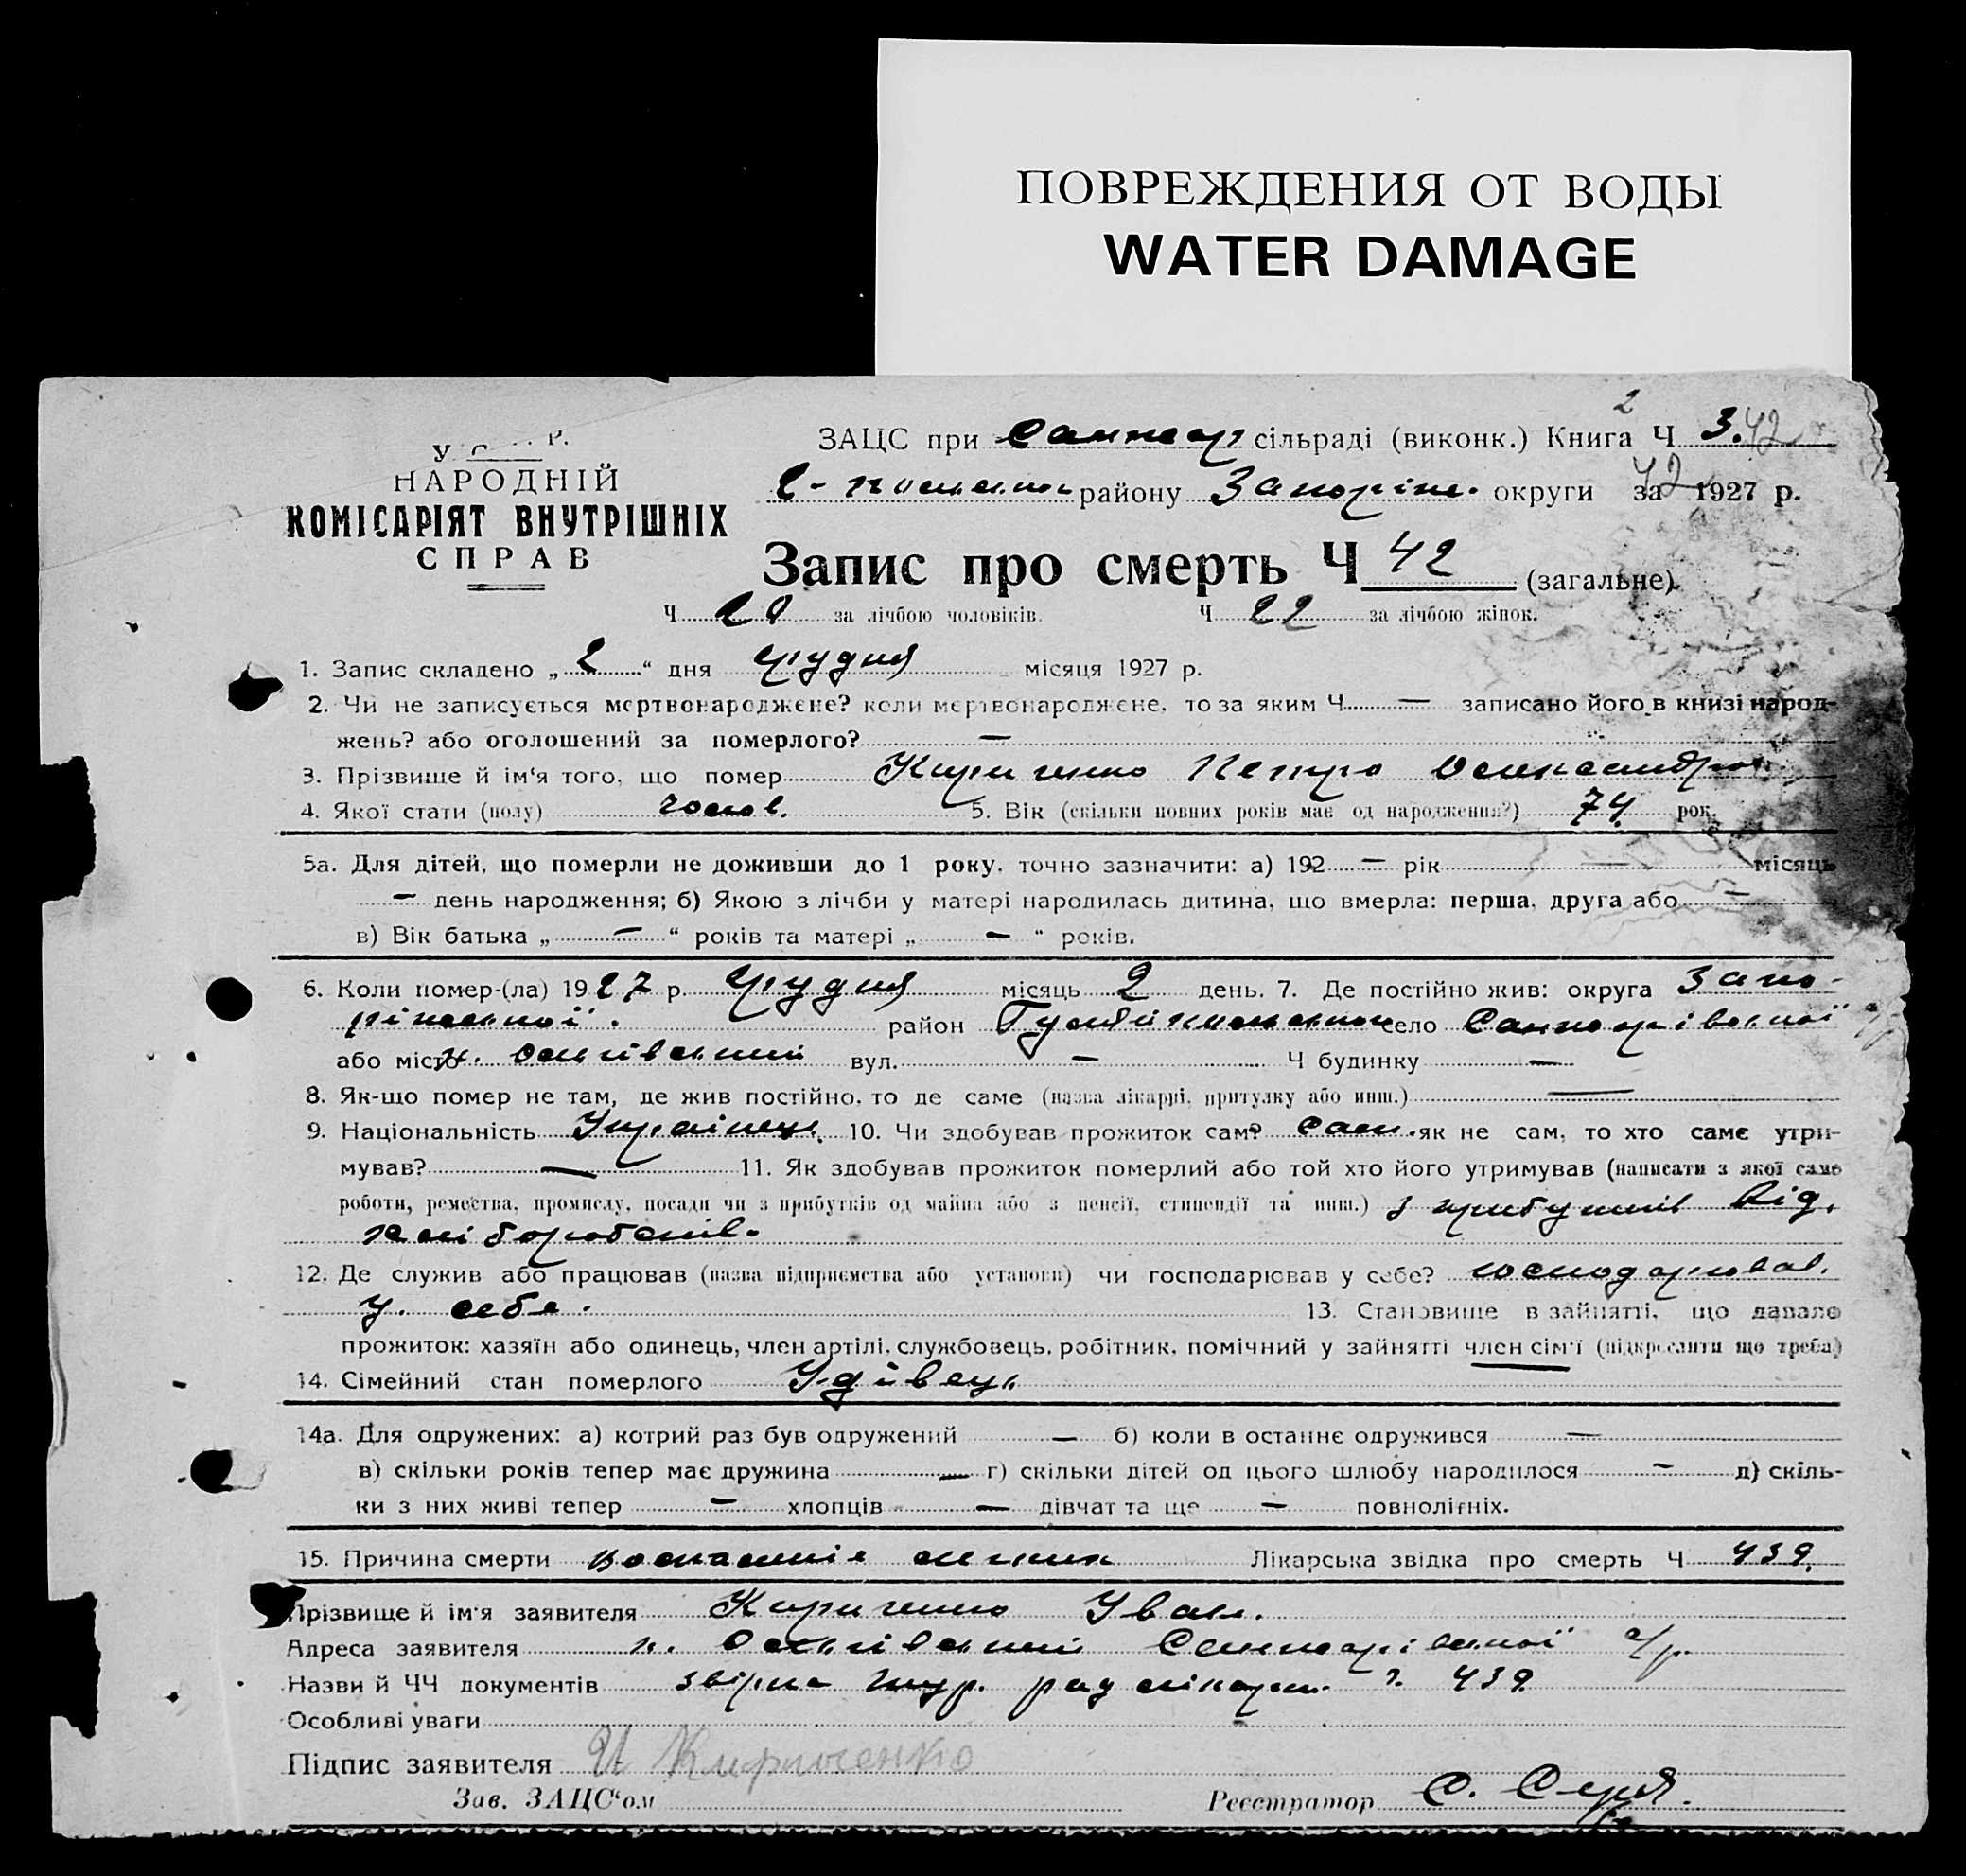 ПОВРЕЖДЕНИЯ ОТ ВОДЫ
WATER DAMAGE
2
ЗАЦС при сільраді (виконк.) Книга Ч 3. 42
району Запоріж. округи за 1927 р.
42
НАРОДНІЙ
КОМІСАРІЯТ ВНУТРІШНІХ
СПРАВ
Запис про смерть Ч 42 (загальне)
Ч 20 за лічбою чоловіків. Ч 22 за лічбою жінок.
1. Запис складено „2“ дня грудня місяця 1927 р.
2. Чи не записується мертвонароджене? коли мертвонароджене, то за яким Ч — записано його в книзі народ-
жень? або оголошений за померлого? —
3. Прізвище й ім‘я того, що помер Кириченко Петро
4. Якої статі (полу) чолов. 5. Вік (скільки повних років має од народження?) 74 рок.
5а. Для дітей, що померли не доживши до 1 року, точно зазначити: а) 192 — рік — місяць
— день народження; б) Якою з лічби у матері народилась дитина, що вмерла: перша, друга або —
в) Вік батька „ — “ років та матері „ — “ років.
6. Коли помер-(ла) 1927 р. грудня місяць 2 день. 7. Де постійно жив: округа Запо-
ріжської. район село
або місто х. вул. — Ч будинку —
8. Як-що помер не там, де жив постійно, то де саме (назва лікарні, притулку або инш.) —
9. Національність Українець. 10. Чи здобував прожиток сам? Сам. як не сам, то хто саме утри-
мував? — 11. Як здобував прожиток померлий або той хто його утримував (написати з якої саме
роботи, ремества, промислу, посади чи з прибутків од майна або з пенсії, стипендії та инш.) з прибутків від.
хліборобства.
12. Де служив або працював (назва підприємства або установи) чи господарював у себе? господарював.
у себе. 13. Становище в зайнятті, що давало
прожиток: хазяїн або одинець, член артілі, службовець, робітник, помічний у зайнятті член сім‘ї (підкреслити що треба)
14. Сімейний стан померлого Удівець
14а. Для одружених: а) котрий раз був одружений — б) коли в останнє одружився —
в) скільки років тепер має дружина — г) скільки дітей од цього шлюбу народилося — д) скіль-
ки з них живі тепер — хлопців — дівчат та ще — повнолітніх.
15. Причина смерти Лікарська звідка про смерть Ч 439.
Прізвище й ім‘я заявителя Кириченко Іван.
Адреса заявителя х.
Назви й ЧЧ документів ч. 439
Особливі уваги
Підпис заявителя И Кириченко
Зав. ЗАЦС‘ом Реєстратор С.